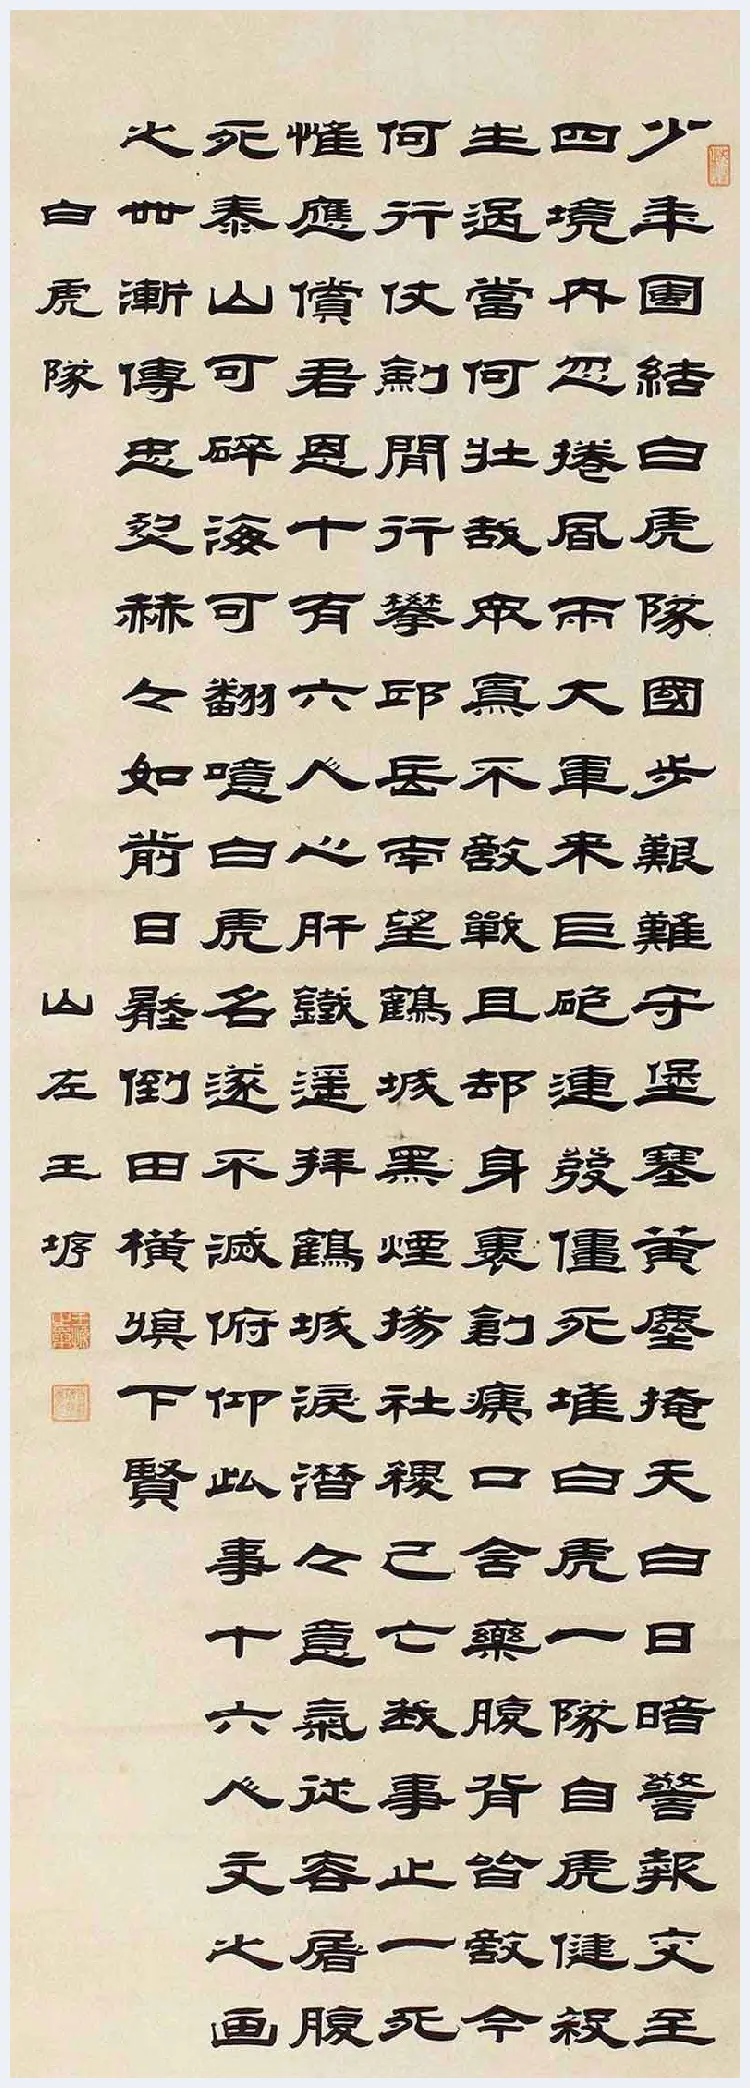 少年團結白虎隊國步艱難守堡塞黃塵掩天白日暗警報交至
四境內忽捲風雨大軍来巨砲連發僵死堆白虎一隊自虎健殺
生過當何壯哉眾寡不敵戰且却身裹創痍口含藥腹背皆敵今
何行仗劍閒行攀邱岳南望鶴城黑煙揚社稷已亡我事止一死
惟應償君恩十有六人心肝鐵遥拜鶴城淚潜々意氣從容屠腹
死泰山可碎海可翻噫白虎名遂不滅俯仰此事十六人文之画
之世漸傳忠烈赫々如前日壓倒田橫下賢
白虎隊
山左王垿